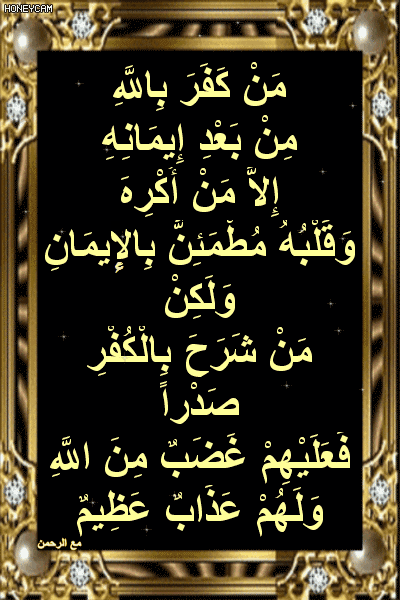 HONEYCAM
مَنْ كَفَرَ بِاللَّهِ
مِنْ بَعْدِ إِيمَانِهِ
إِلاَّ مَنْ أُكْرِهَ
وَقَلْبُهُ مُطْمَئِنٌّ بِالإِيمَانِ
وَلَكِنْ
مَنْ شَرَحَ بِالْكُفْرِ
صَدْراً
فَعَلَيْهِمْ غَضَبٌ مِنَ اللَّهِ
وَلَهُمْ عَذَابٌ عَظِيمٌ
مع الرحمن